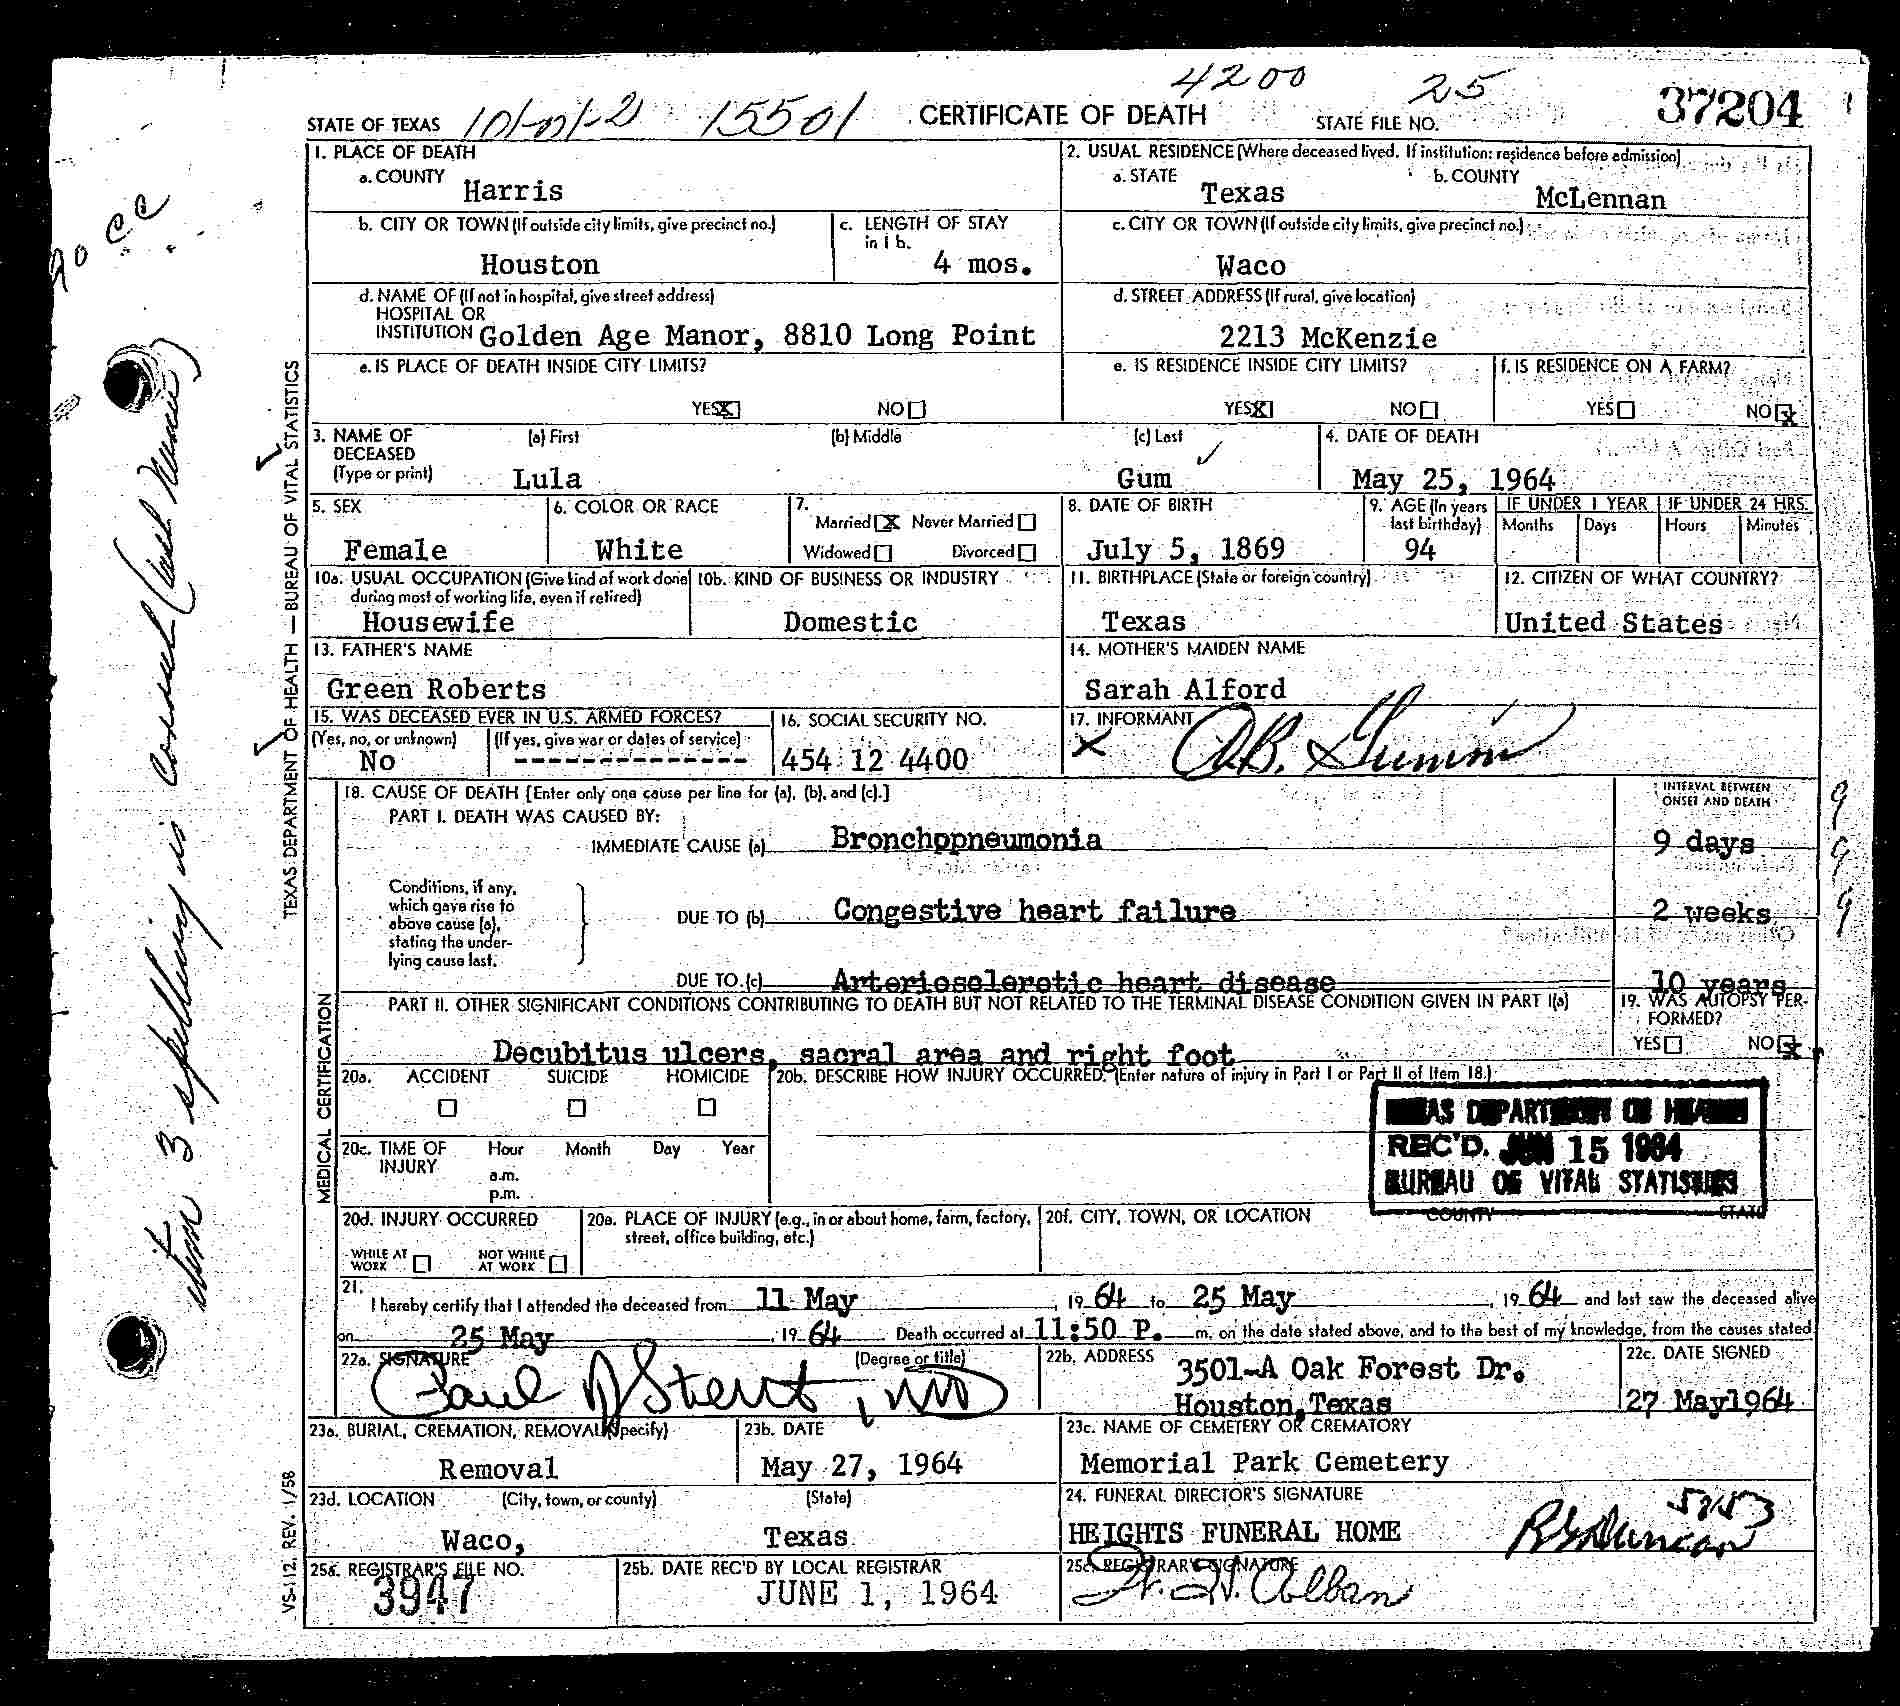 4200 25
STATE OF TEXAS 15501 CERTIFICATE OF DEATH STATE FILE NO. 37204
1. PLACE OF DEATH
a. COUNTY Harris
2. USUAL RESIDENCE (Where deceased lived. If institution: residence before admission)
a. STATE Texas b. COUNTY McLennan
b. CITY OR TOWN (If outside city limits, give precinct no.) Houston
c. LENGTH OF STAY in 1 b. 4 mos.
c. CITY OR TOWN (If outside city limits, give precinct no.) Waco
d. NAME OF (If not in hospital, give street address)
HOSPITAL OR
INSTITUTION Golden Age Manor, 8810 Long Point
d. STREET ADDRESS (If rural, give location)
2213 McKenzie
e. IS PLACE OF DEATH INSIDE CITY LIMITS?
YES X NO
e. IS RESIDENCE INSIDE CITY LIMITS?
YES X NO
f. IS RESIDENCE ON A FARM?
YES NO X
3. NAME OF DECEASED (Type or print)
(a) First (b) Middle (c) Last
Lula Gum
4. DATE OF DEATH
May 25, 1964
5. SEX
Female
6. COLOR OR RACE
White
7.
Married X Never Married
Widowed Divorced
8. DATE OF BIRTH
July 5, 1869
9. AGE (In years last birthday)
94
IF UNDER 1 YEAR IF UNDER 24 HRS.
Months Days Hours Minutes
10a. USUAL OCCUPATION (Give kind of work done during most of working life, even if retired)
Housewife
10b. KIND OF BUSINESS OR INDUSTRY
Domestic
11. BIRTHPLACE (State or foreign country)
Texas
12. CITIZEN OF WHAT COUNTRY?
United States
13. FATHER'S NAME
Green Roberts
14. MOTHER'S MAIDEN NAME
Sarah Alford
15. WAS DECEASED EVER IN U.S. ARMED FORCES?
(Yes, no, or unknown) (If yes, give war or dates of service)
No --------------
16. SOCIAL SECURITY NO.
454 12 4400
17. INFORMANT
X B. Gumm
18. CAUSE OF DEATH [Enter only one cause per line for (a), (b), and (c).]
INTERVAL BETWEEN ONSET AND DEATH
PART I. DEATH WAS CAUSED BY:
IMMEDIATE CAUSE (a) Bronchopneumonia 9 days
Conditions, if any, which gave rise to above cause (a), stating the underlying cause last.
DUE TO (b) Congestive heart failure 2 weeks
DUE TO (c) Arteriosclerotic heart disease 10 years
PART II. OTHER SIGNIFICANT CONDITIONS CONTRIBUTING TO DEATH BUT NOT RELATED TO THE TERMINAL DISEASE CONDITION GIVEN IN PART I(a)
Decubitus ulcers, sacral area and right foot
19. WAS AUTOPSY PERFORMED?
YES NO X
20a. ACCIDENT SUICIDE HOMICIDE
20b. DESCRIBE HOW INJURY OCCURRED. (Enter nature of injury in Part I or Part II of Item 18.)
TEXAS DEPARTMENT OF HEALTH
REC'D. JUN 15 1964
BUREAU OF VITAL STATISTICS
20c. TIME OF INJURY
Hour Month Day Year
a.m.
p.m.
20d. INJURY OCCURRED
WHILE AT WORK NOT WHILE AT WORK
20e. PLACE OF INJURY (e.g., in or about home, farm, factory, street, office building, etc.)
20f. CITY, TOWN, OR LOCATION COUNTY STATE
21. I hereby certify that I attended the deceased from 11 May, 19 64 to 25 May, 19 64 and last saw the deceased alive
on 25 May, 19 64 Death occurred at 11:50 P. m. on the date stated above, and to the best of my knowledge, from the causes stated
22a. SIGNATURE (Degree or title)
Paul MD
22b. ADDRESS
3501-A Oak Forest Dr.
Houston, Texas
22c. DATE SIGNED
27 May 1964
23a. BURIAL, CREMATION, REMOVAL (Specify)
Removal
23b. DATE
May 27, 1964
23c. NAME OF CEMETERY OR CREMATORY
Memorial Park Cemetery
23d. LOCATION (City, town, or county) (State)
Waco, Texas
24. FUNERAL DIRECTOR'S SIGNATURE
HEIGHTS FUNERAL HOME Duncan
25a. REGISTRAR'S FILE NO.
3947
25b. DATE REC'D BY LOCAL REGISTRAR
JUNE 1, 1964
25c. REGISTRAR'S SIGNATURE
TEXAS DEPARTMENT OF HEALTH — BUREAU OF VITAL STATISTICS
MEDICAL CERTIFICATION
VS-112. REV. 1/58
item 3 spelling is correct
9
9
9